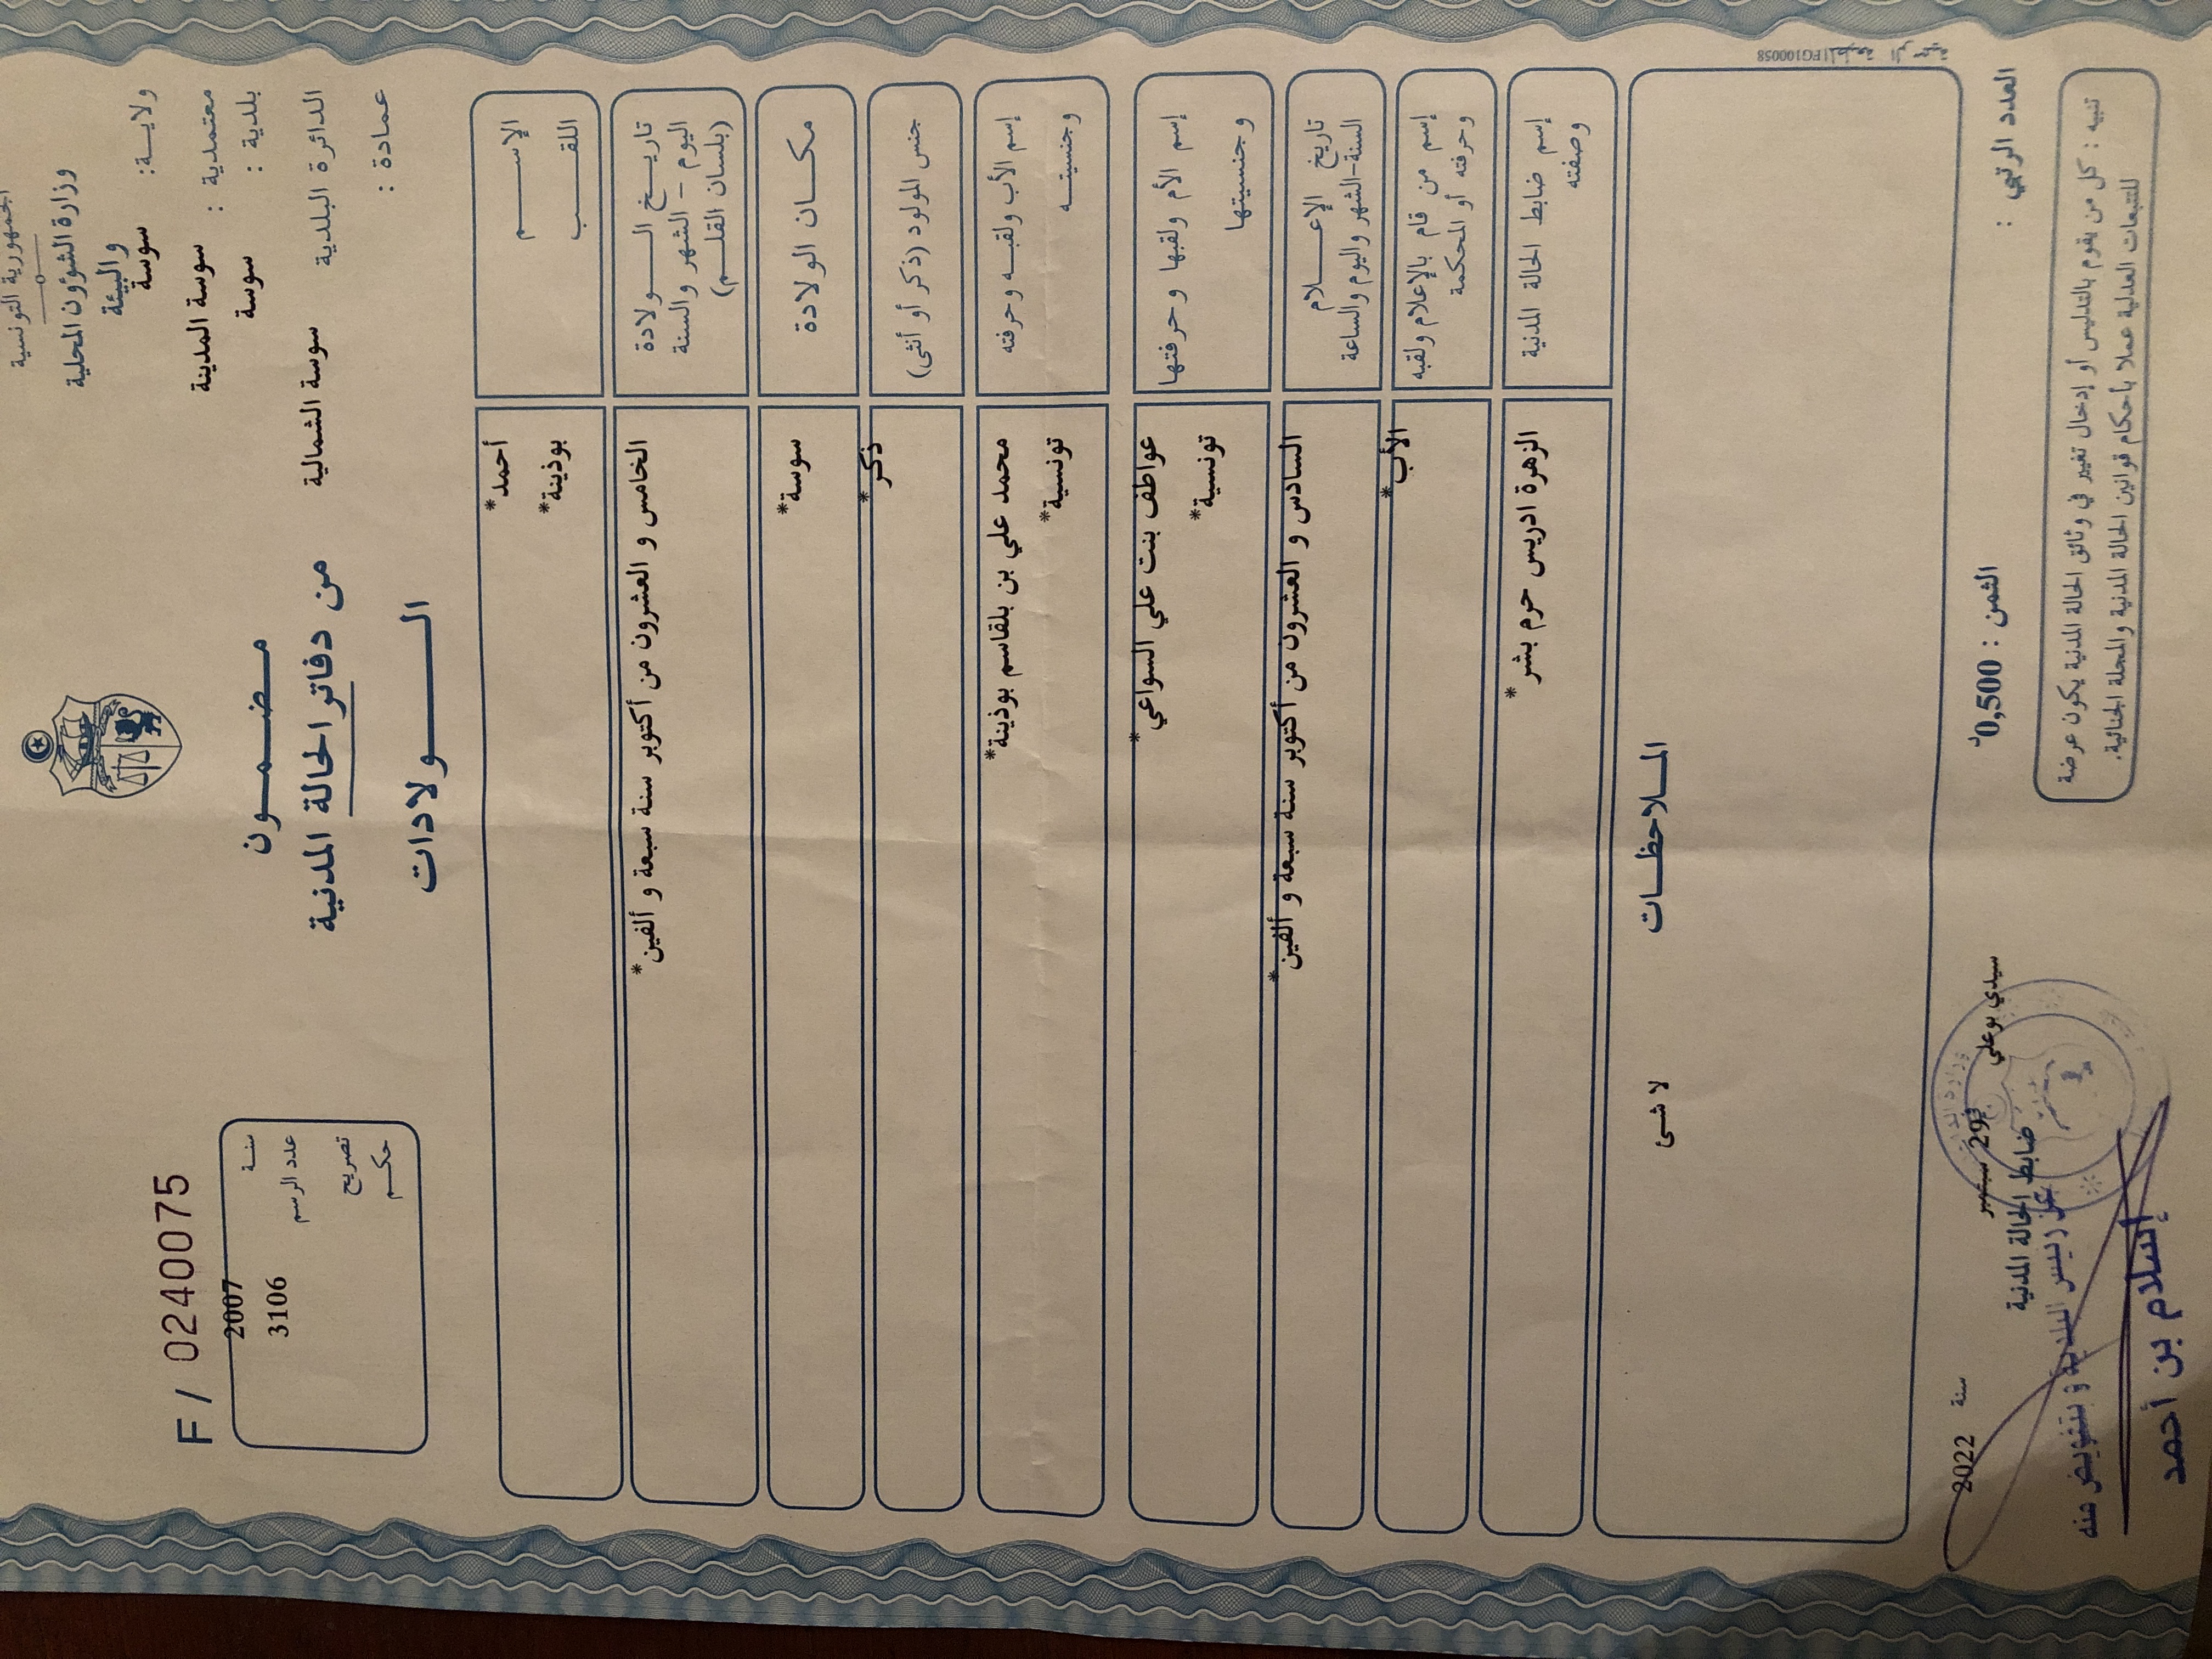 الجمهورية التونسية
وزارة الشؤون المحلية
والبيئة
ولايـــة : سوسة
معتمدية : سوسة المدينة
بلدية : سوسة
الدائرة البلدية سوسة الشمالية
عمادة :
مـضـمـــون
من دفاتر الحالة المدنية
الـــــولادات
F / 02400075
سنـة 2007
عدد الرسم 3106
تصريح
حكـم
الإســـــم أحمد*
اللقـــــب بوذينة*
تاريــخ الـــــولادة الخامس و العشرون من أكتوبر سنة سبعة و ألفين*
اليوم - الشهر والسنة
(بلسان القلـــم)
مكــان الولادة سوسة*
جنس المولود (ذكر أو أنثى) ذكر*
إسم الأب ولقبـه وحرفته محمد علي بن بلقاسم بوذينة*
وجنسيتــه تونسية*
إسم الأم ولقبها وحرفتها عواطف بنت علي السواعي*
وجنسيتها تونسية*
تاريخ الإعـــــلام السادس و العشرون من أكتوبر سنة سبعة و ألفين*
السنة-الشهر واليوم والساعة
إسم من قام بالإعلام ولقبه الأب*
وحرفته أو المحكمة
إسم ضابط الحالة المدنية الزهرة ادريس حرم بشر*
وصفته
المــلاحظــات
لا شئ
المطبعة الرسمية FG100058
العدد الرتبي :
الثمن : 0,500د
سيدي بوعلي في 29 سبتمبر سنة 2022
ضابط الحالة المدنية
عن رئيس البلدية و بتفويض منه
إسلام بن أحمد
تنبيه : كل من يقوم بالتدليس أو إدخال تغيير في وثائق الحالة المدنية يكون عرضة
للتتبعات العدلية عملا بأحكام قوانين الحالة المدنية والمجلة الجنائية.